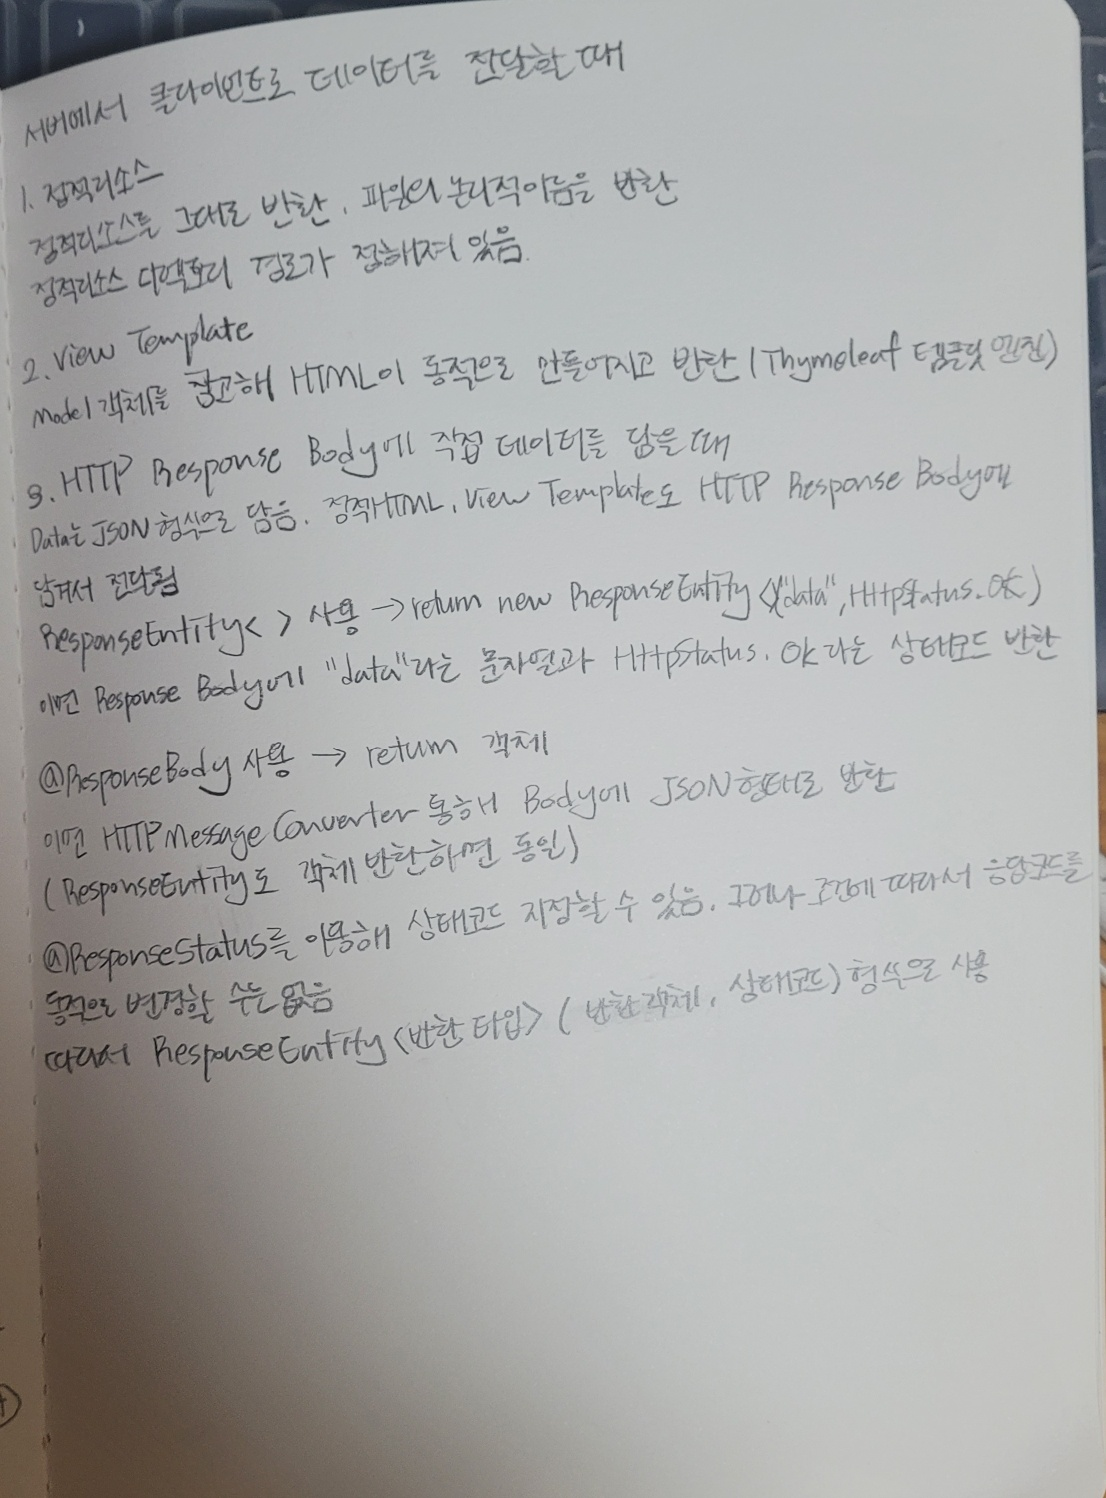 서버에서 클라이언트로 데이터를 전달할 때
1. 정적리소스
정적리소스를 그대로 반환, 파일의 논리적이름을 반환
정적리소스 디렉토리 경로가 정해져 있음.
2. View Template
Model 객체를 참고해 HTML이 동적으로 만들어지고 반환 (Thymeleaf 템플릿 엔진)
3. HTTP Response Body에 직접 데이터를 담을 때
Data는 JSON 형식으로 담음. 정적HTML, View Template도 HTTP Response Body에
담겨서 전달됨
ResponseEntity< > 사용 → return new ResponseEntity<>("data", HttpStatus.OK)
이면 Response Body에 "data"라는 문자열과 HttpStatus.OK라는 상태코드 반환
@ResponseBody 사용 → return 객체
이면 HTTPMessageConverter 통해서 Body에 JSON형태로 반환
(ResponseEntity도 객체 반환하면 동일)
@ResponseStatus를 이용해 상태코드 지정할 수 있음. 그러나 조건에 따라서 응답코드를
동적으로 변경할 수는 없음
따라서 ResponseEntity<반환 타입> (반환객체, 상태코드) 형식으로 사용